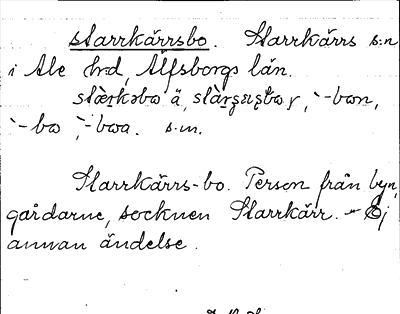 starrkärrsbo. Starrkärrs s:n
i Ale hrd, Älfsborgs län.
stàrkəbo ä, stàrʂɛʂbor, `-bon,
`-bo, `-boa. s.m.
Starrkärrs-bo. Person från byn,
gårdarne, socknen Starrkärr. - Ej
annan ändelse.